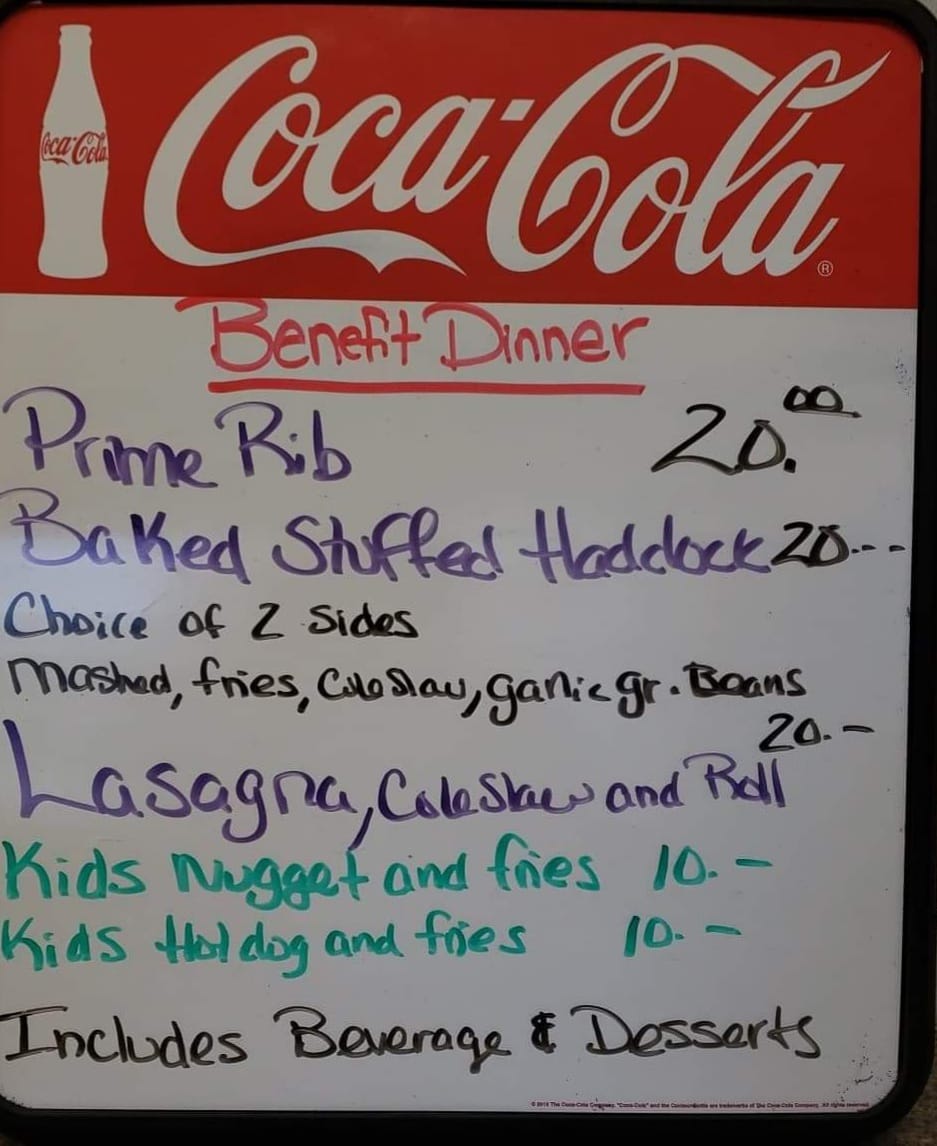 Coca-Cola
Coca-Cola®
Benefit Dinner
Prime Rib 20.00
Baked Stuffed Haddock 20.--
Choice of 2 Sides
Mashed, fries, Cole Slaw, garlic gr. Beans
20.-
Lasagna, Cole Slaw and Roll
Kids Nugget and fries 10.-
Kids Hot dog and fries 10.-
Includes Beverage & Desserts
The Coca-Cola Company. "Coca-Cola" and the Contour Bottle are trademarks of The Coca-Cola Company. All rights reserved.